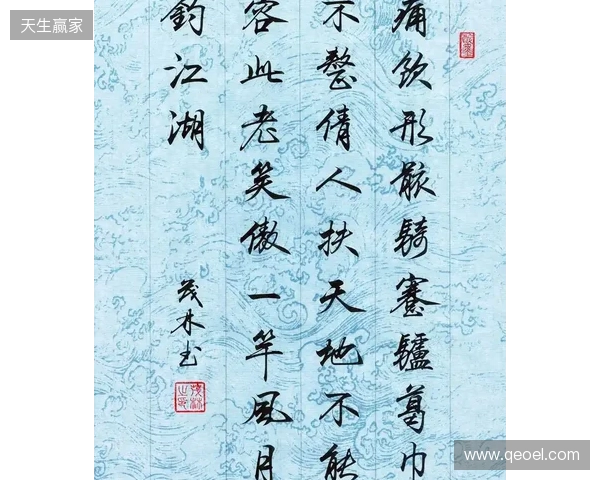 天生赢家
痛飲形骸騎蹇驢葛巾
不整倩人扶天地不能
容此老笑傲一竿風月
釣江湖
茂林书
www.qeoel.com